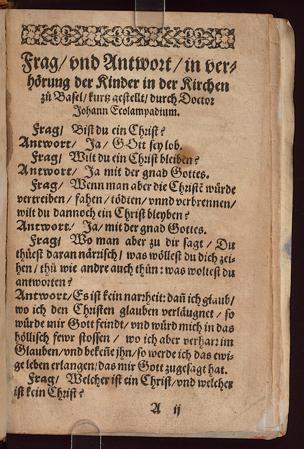 Frag/ vnd Antwort/ in ver-
hörung der Kinder in der Kirchen
zů Basel/ kurtz gestellt/ durch Doctor
Johann Ecolampadium.
Frag/ Bist du ein Christ?
Antwort/ Ja/ GOtt sey lob.
Frag/ Wilt du ein Christ bleiben?
Antwort/ Ja mit der gnad Gottes.
Frag/ Wenn man aber die Christē würde
vertreiben / fahen / tödten / vnnd verbrennen/
wilt du dannoch ein Christ bleyben?
Antwort/ Ja/ mit der gnad Gottes.
Frag/ Wo man aber zu dir sagt / Du
thüest daran närrisch/ was wöllest du dich zei-
hen / thů wie andre auch thün: was woltest du
antworten?
Antwort/ Es ist kein narrheit: dañ ich glaub/
wo ich den Christen glauben verläugnet / so
würde mir Gott feindt/ vnd würd mich in das
höllisch fewr stossen / wo ich aber verharr im
Glauben/ vnd bekeñe jhn/ so werde ich das ewi-
ge leben erlangen/ das mir Gott zugesagt hat.
Frag/ Welcher ist ein Christ/ vnd welcher
ist kein Christ?
A ij